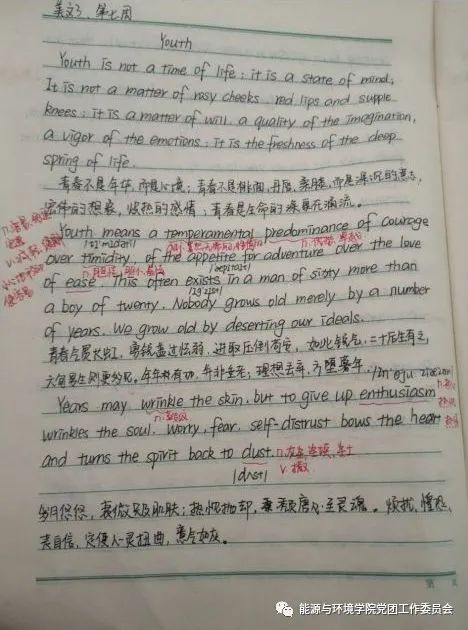 美文3. 第七周
Youth
Youth is not a time of life; it is a state of mind;
It is not a matter of rosy cheeks red lips and supple
knees; it is a matter of will. a quality of the imagination,
a vigor of the emotions; it is the freshness of the deep
spring of life.
青春不是年华,而是心境;青春不是桃面、丹唇、柔膝,而是深沉的意志,
宏伟的想象,炽热的感情;青春是生命的深泉在涌流。
Youth means a temperamental predominance of courage
/tɪˈmɪdəti/
over timidity, of the appetite for adventure over the love
n.胆怯,胆小,羞怯
of ease. This often exists in a man of sixty more than
a boy of twenty. Nobody grows old merely by a number
of years. We grow old by deserting our ideals.
青春气贯长虹,勇锐盖过怯弱,进取压倒苟安,如此锐气,二十后生有之,
六旬男生则更多见。年年有功,年非垂老;理想丢弃,方堕暮年。
Years may wrinkle the skin, but to give up enthusiasm
wrinkles the soul. Worry, fear, self-distrust bows the heart
and turns the spirit back to dust.
/dʌst/
岁月悠悠,衰微只及肌肤;热忱抛却,颓废必至灵魂。烦扰,惶恐,
丧自信,定使人灵扭曲,意气如灰。
能源与环境学院党团工作委员会